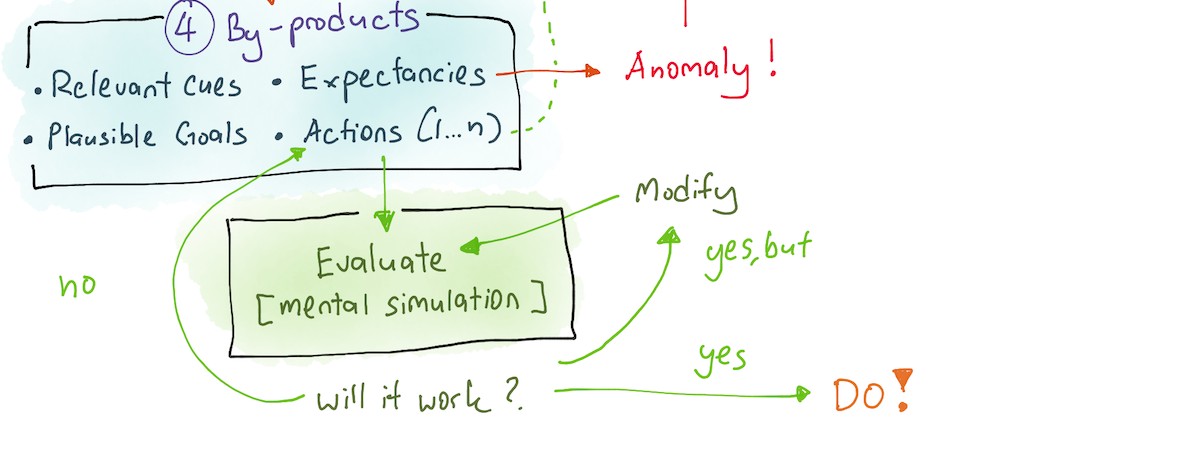 ④ By-products
• Relevant cues • Expectancies
Anomaly!
• Plausible Goals • Actions (1...n)
Modify
yes, but
Evaluate
[mental simulation]
no
yes
will it work?
DO!